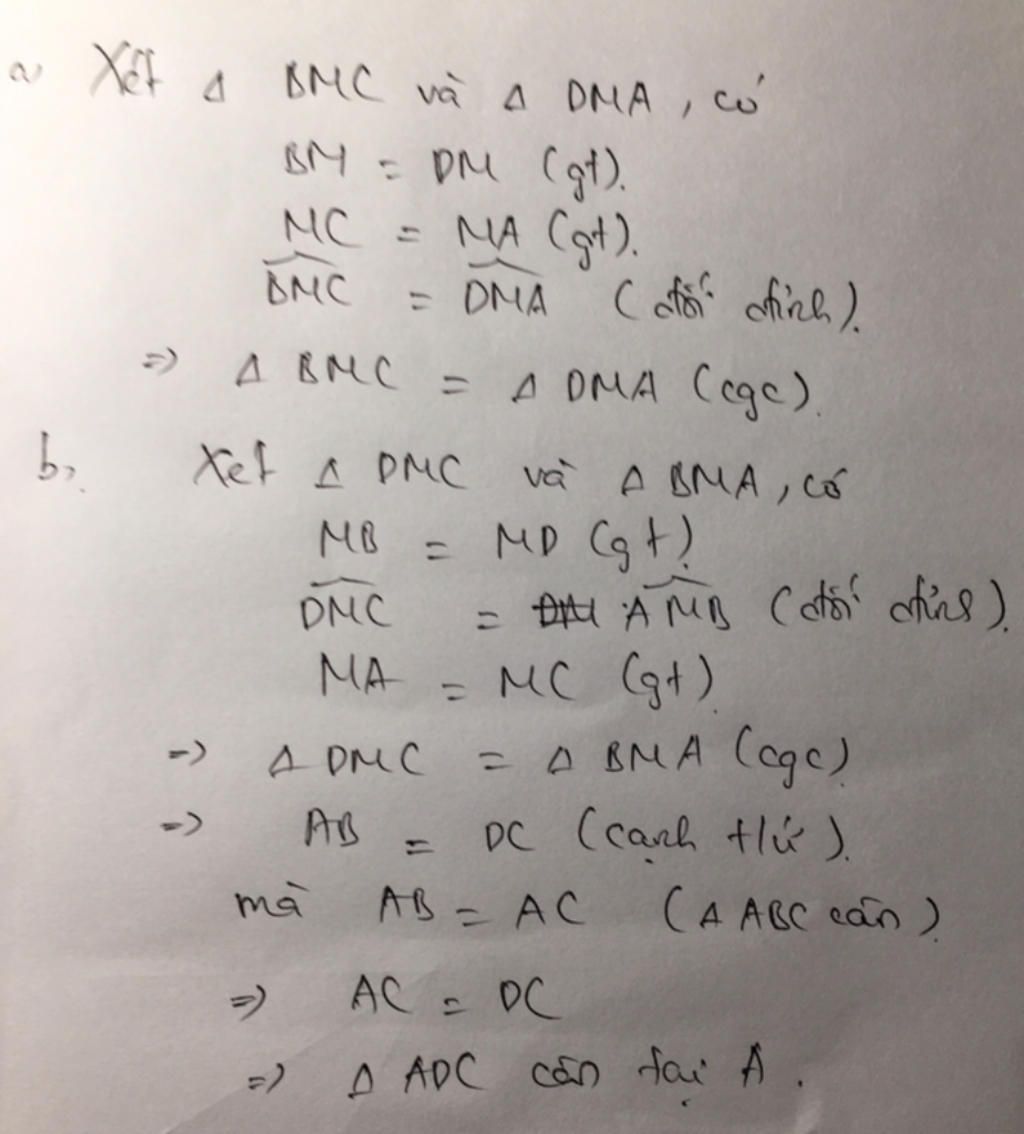 a, Xét Δ BMC và Δ DMA, có
BM = DM (gt).
MC = MA (gt).
\widehat{BMC} = \widehat{DMA} (đối đỉnh).
=> Δ BMC = Δ DMA (cgc).
b, Xét Δ DMC và Δ BMA, có
MB = MD (gt).
\widehat{DMC} = \widehat{AMB} (đối đỉnh).
MA = MC (gt).
=> Δ DMC = Δ BMA (cgc).
=> AB = DC (cạnh t/ứ).
mà AB = AC (Δ ABC cân).
=> AC = DC
=> Δ ADC cân tại A.